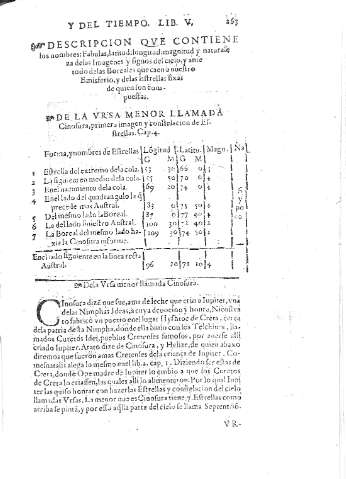 Y DEL TIEMPO. LIB. V. 263
DESCRIPCION QVE CONTIENE
los nombres: Fabulas, latitud: longitud: magnitud y naturale
za de las Imagenes y signos del cielo, y ante
todo de las Boreales que caen a nuestro
Emisferio, y de las Estrellas fixas
de quien son com-
puestas.
DE LA VRSA MENOR LLAMADA
Cinosura, primera imagen y constelacion de Es-
trellas. Cap. 4.
Forma, y nombres de Estrellas Lōgitud Latitu. Magni. Na
G M G M
1 Estrella del extremo de la cola. 53 30 66 0 3
2 La siguiente en medio de la cola. 55 50 70 0 4
3 En el nacimiento de la cola. 69 20 74 0 4
4 En el lado del quadrangulo
precedente mas Austral. 83 0 75 4
5 Del mesmo lado la Boreal. 87 0 77 40 4
6 La del lado siniestro Austral. 100 30 72 40 2
7 La Boreal del mesmo lado ba- 109 30 74 50 2
xia la Cinosura informe.
En el lado siguiente en la linea recta
Austral. 96 20 71 10 4
De la Vrsa menor llamada Cinosura.
CInosura dizē que fue, ama de leche que crio a Iupiter, vna
de las Nimphas Ideas, a cuya deuocion y honra, Nicostra
to fabricò vn puerto en el lugar Hystoroc de Creta,
dela patria desta Nimpha, donde ella biuio con los Telchines, lla-
mados Curetos Ideos, pueblos Cretenses famosos, por auerse alli
criado Iupiter. Arato dize de Cinosura, y Helize, de quien abaxo
diremos que fueron amas Cretenses dela criança de Iupiter. Co-
mo Natalis alega lo mesmo en el lib. 2. cap. 1. Diziendo ser ellas de
Creta, donde Ope madre de Iupiter lo embio a que los Curetos
de Creta lo criassen, las quales alli lo alimentaron. Por lo qual Iupi
ter las quiso honrar con hazerlas Estrellas y constelacion del cielo
llamadas Vrsas. La menor que es Cinosura tiene, 7. Estrellas como
arriba se pinta, y por esso aq̃lla parte del cielo se llama Septentriō-
VR-